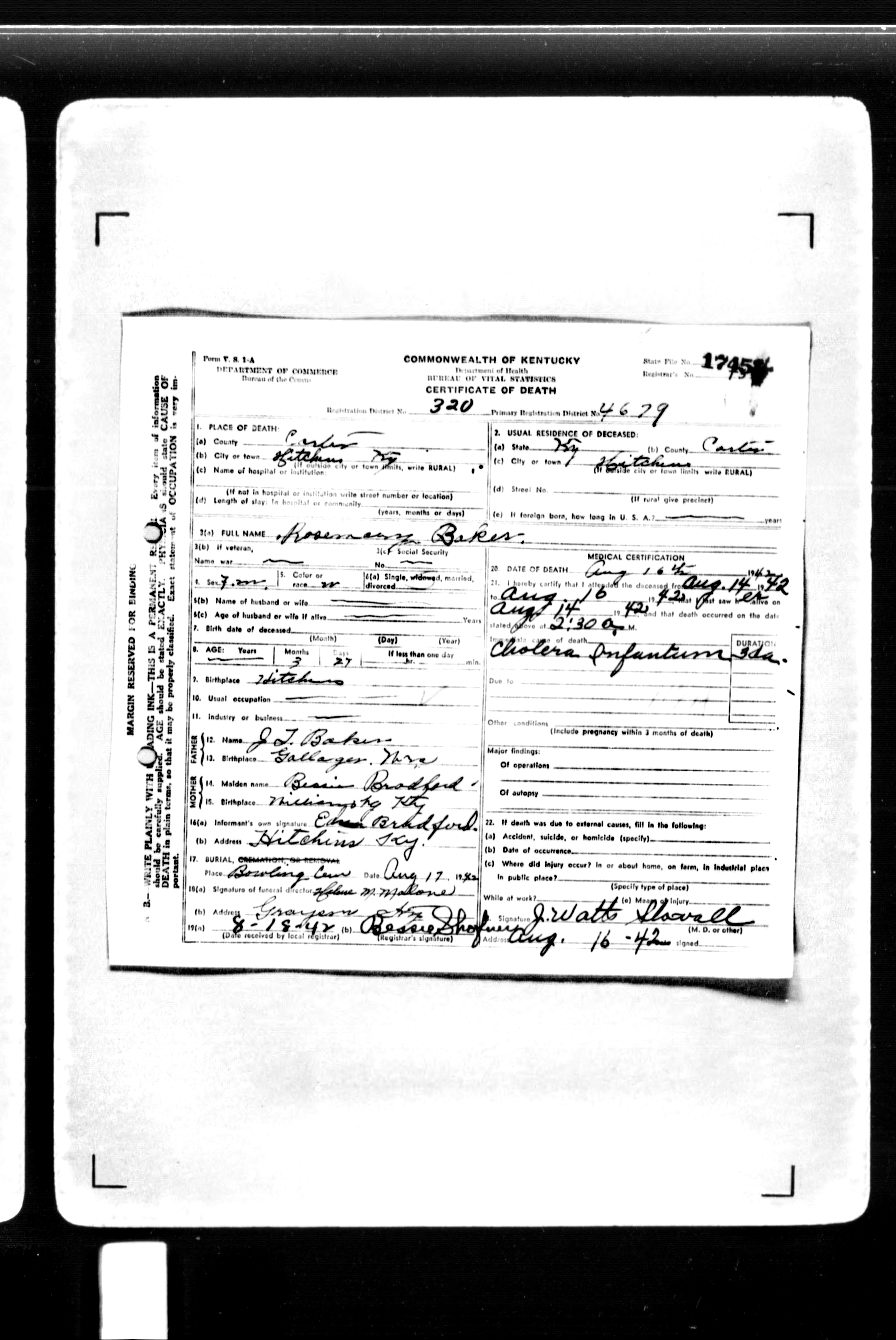 Form V. S. 1-A
DEPARTMENT OF COMMERCE
Bureau of the Census
COMMONWEALTH OF KENTUCKY
Department of Health
BUREAU OF VITAL STATISTICS
CERTIFICATE OF DEATH
State File No.
Registrar's No.
Registration District No. 320 Primary Registration District No. 4679
MARGIN RESERVED FOR BINDING
B.—WRITE PLAINLY WITH FADING INK—THIS IS A PERMANENT Every item of information
should be carefully supplied. AGE should be stated EXACTLY. should state CAUSE OF
DEATH in plain terms, so that it may be properly classified. Exact statement of OCCUPATION is very im-
portant.
1. PLACE OF DEATH:
(a) County Carter
(b) City or town Hitchins Ky
(If outside city or town limits, write RURAL)
(c) Name of hospital or institution:
(If not in hospital or institution write street number or location)
(d) Length of stay: In hospital or community
(years, months or days)
2. USUAL RESIDENCE OF DECEASED:
(a) State Ky (b) County Carter
(c) City or town Hitchins
(If outside city or town limits write RURAL)
(d) Street No.
(If rural give precinct)
(e) If foreign born, how long in U. S. A.? years
3(a) FULL NAME Rosemary Baker
3(b) If veteran,
Name war
3(c) Social Security
No.
4. Sex F.m. 5. Color or race w 6(a) Single, widowed, married, divorced
6(b) Name of husband or wife
6(c) Age of husband or wife if alive Years
7. Birth date of deceased
(Month) (Day) (Year)
8. AGE: Years Months Days If less than one day
3 27 hr. min.
9. Birthplace Hitchins
10. Usual occupation
11. Industry or business
FATHER
12. Name J T. Baker
13. Birthplace
MOTHER
14. Maiden name Bessie Bradford
15. Birthplace Kty
16(a) Informant's own signature Bradford.
(b) Address Hitchins Ky.
17. BURIAL, CREMATION, OR REMOVAL
Place Bowling Cem Date Aug 17, 1942
18(a) Signature of funeral director M. Malone
(b) Address Grayson Ky
19(a) 8-18-42 (b) Bessie
(Date received by local registrar) (Registrar's signature)
MEDICAL CERTIFICATION
20. DATE OF DEATH Aug 16th 1942
21. I hereby certify that I attended the deceased from Aug. 14 1942
to Aug. 16 1942, that I last saw her alive on
Aug 14 1942, and that death occurred on the date
stated above at 2:30 a M.
Immediate cause of death DURATION
Cholera Infantum 3 da.
Due to
Other conditions
(Include pregnancy within 3 months of death)
Major findings:
Of operations
Of autopsy
22. If death was due to external causes, fill in the following:
(a) Accident, suicide, or homicide (specify)
(b) Date of occurrence
(c) Where did injury occur? in or about home, on farm, in industrial place
in public place?
(Specify type of place)
While at work? (e) Means of injury
Signature J. Watts Stovall
(M. D. or other)
Address Aug. 16-42 signed